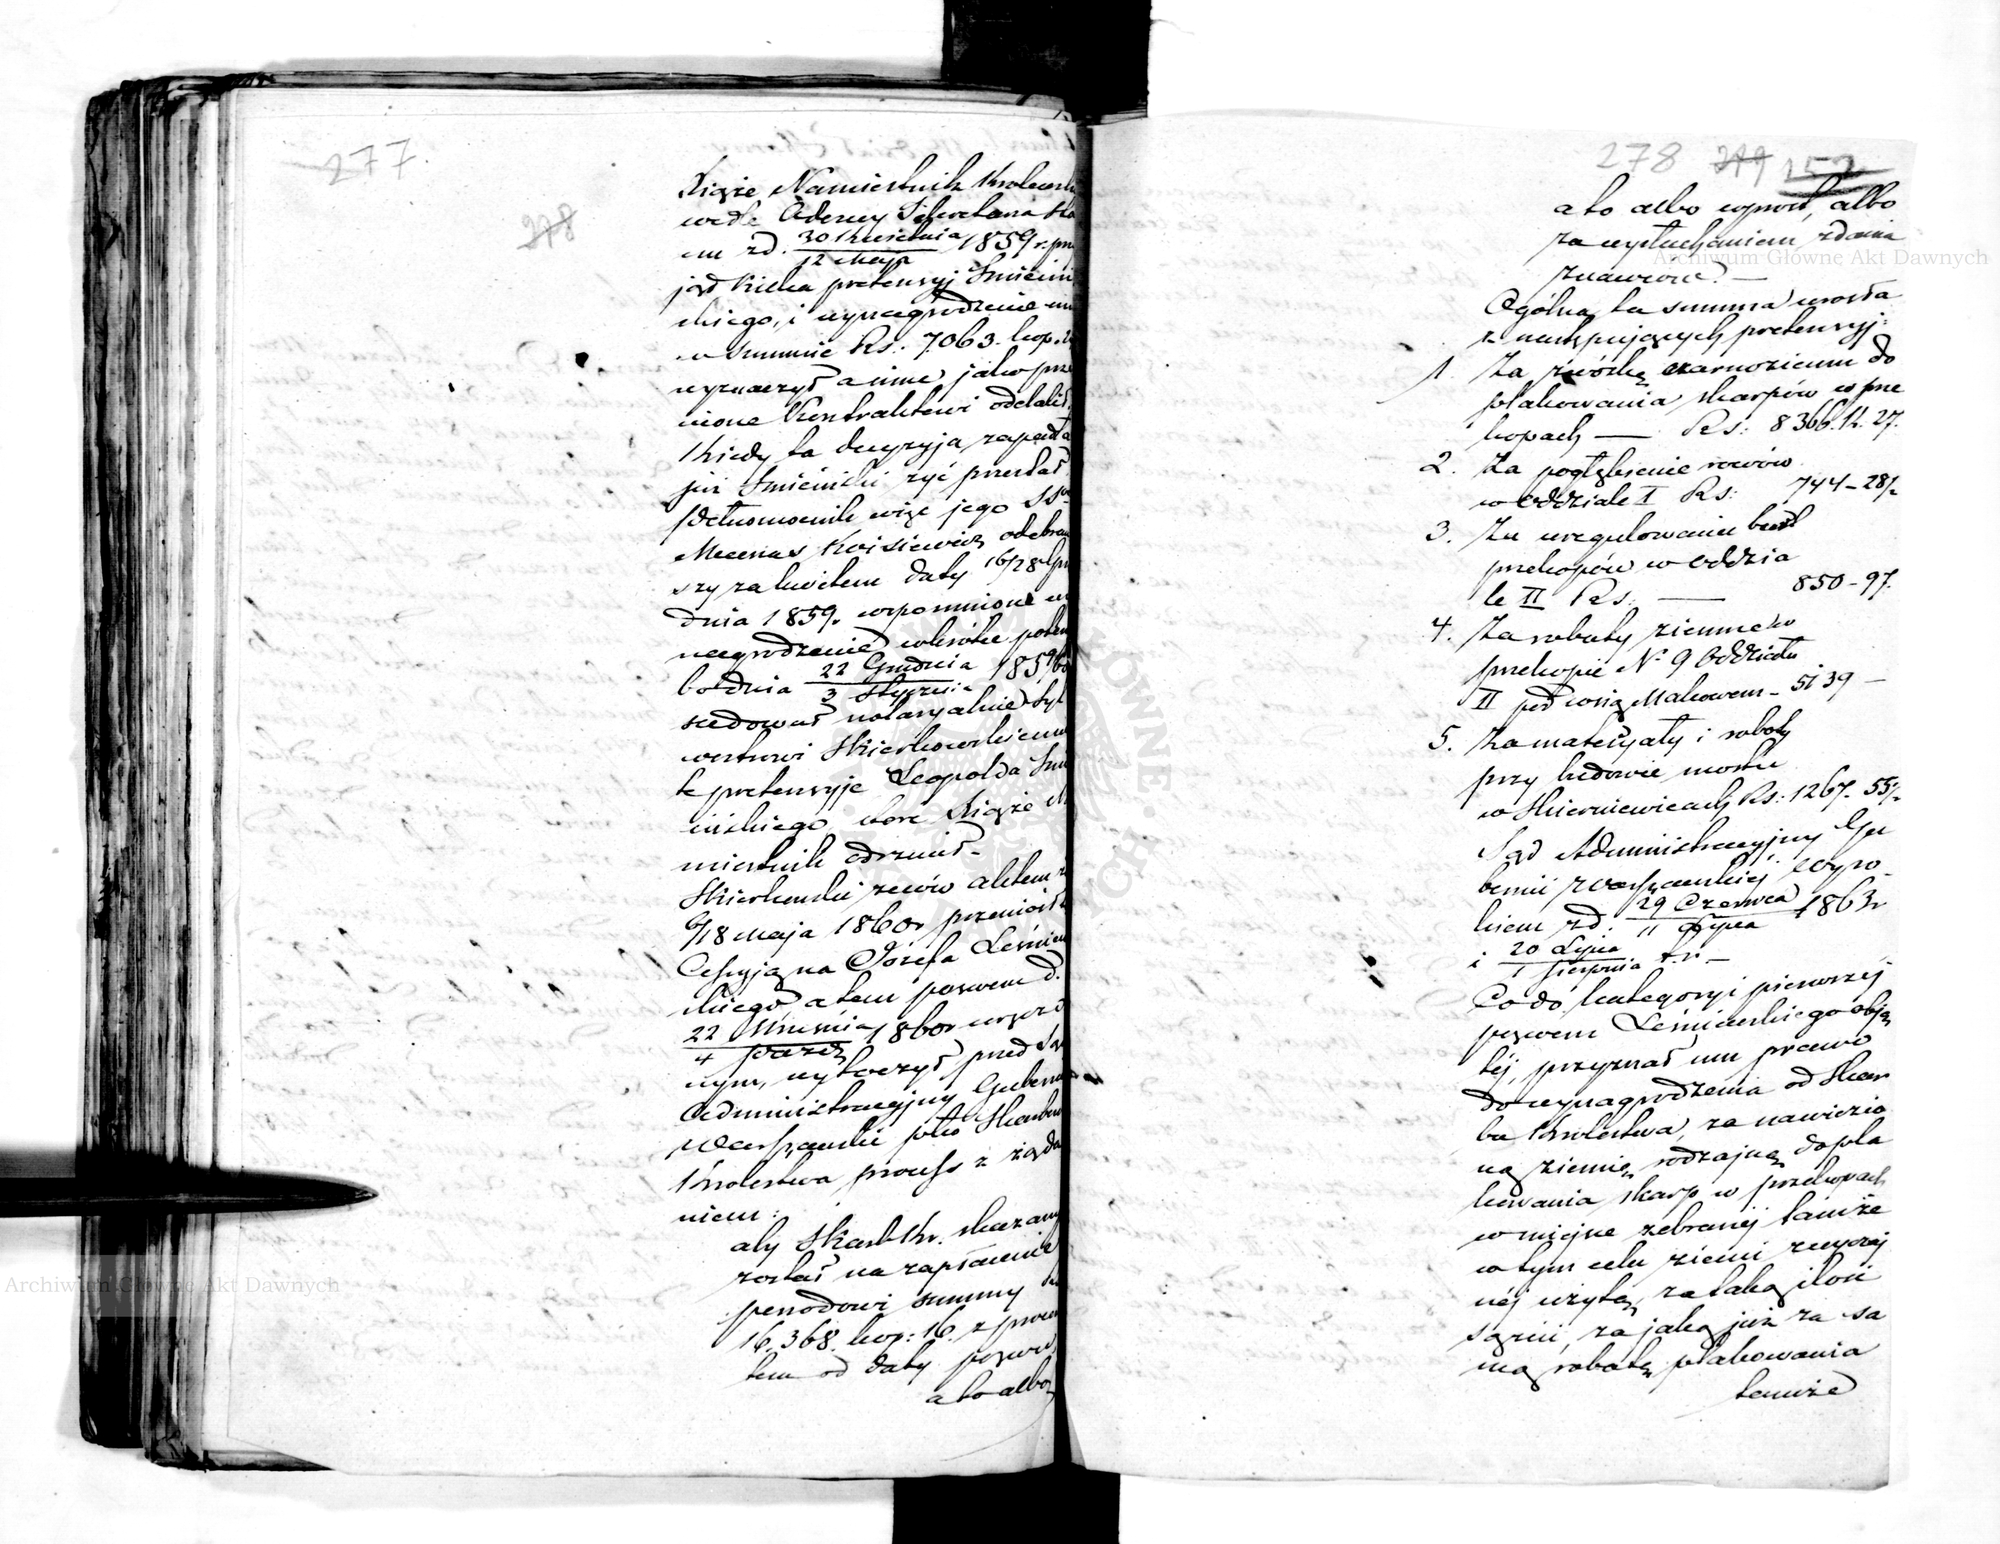 277.
278
Xiąże Namiestnik Królewski
wedle Odezwy Sekretarza Sta
nu z d. 30 Kwietnia / 12 Maja 1859 r. prz
jął kilka pretensyj Smieciń
skiego, i wynagrodzenie mu
w summie Rs: 7,063. kop.
wyznaczył a inne, jako prze
ciwne Kontraktowi oddalił.
Kiedy ta decyzyja zapadła
już Smieciński żyć przestał
Pełnomocnik więc jego SSów
Mecenas Kwisiewicz odebraw
szy za kwitem daty 16/28 Gru
dnia 1859. wspomnione wy
nagrodzenie wkrótce potem
bo dnia 22 Grudnia / 3 Stycznia 1859/60
scedował notaryalnie Syl
westrowi Skierkowskiemu
te pretensyje Leopolda Smie
cińskiego które Xiąże Na
miestnik odrzucił.
Skierkowski znów aktem z
6/18 Maja 1860r przeniósł
Cessyją na Józefa Leśniew
skiego, a ten pozwem d.
22 Września / 4 Paźdz 1860r wyżéd
nym, wytoczył przed Sąd
Administracyjny Gubernii
Warszawskiéj pko Skarbowi
Królestwa process z żąda
niem:
aby Skarb Kr. skazany
został na zapłacenie
powodowi summy Rs
16,368. kop: 16. z procen
tem od daty pozwu,
a to albo
278 279 152
a to albo wprost, albo
za wysłuchaniem zdania
znawców. —
Ogólna ta summa urosła
z następujących pretensyj:
1. Za zwózkę czarnoziemu do
plakowania skarpów w prze
kopach — Rs: 8366. k. 27.
2. Za pogłębienie rowów
w Oddziale I Rs: 744 - 28½
3. Za uregulowanie burt
przekopów w Oddzia
le II Rs. — 850 - 97.
4. Za roboty ziemne w
przekopie No 9 Oddziału
II pod wsią Makowem - 5139 —
5. Za materyały i roboty
przy budowie mostu
w Skierniewicach Rs: 1267. 55½
Sąd Administracyjny Gu
bernii Warszawskiéj Wyro-
kiem z d. 29 Czerwca / 11 Lipca 1863r
i 20 Lipca / 1 Sierpnia t.r. —
Co do kategoryi pierwszej
pozwem Leśniewskiego obję
téj, przyznał mu prawo
do wynagrodzenia od Skar
bu Królestwa, za nawiezio
ną ziemię rodzajną do pla
kowania skarp w przekopach
w miejsce zebranéj tamże
w tym celu ziemi zwyczaj
néj użytą, za taką ilość
sążni, za jaką już za sa
mą robotę plakowania
tamże
Archiwum Główne Akt Dawnych
Archiwum Główne Akt Dawnych